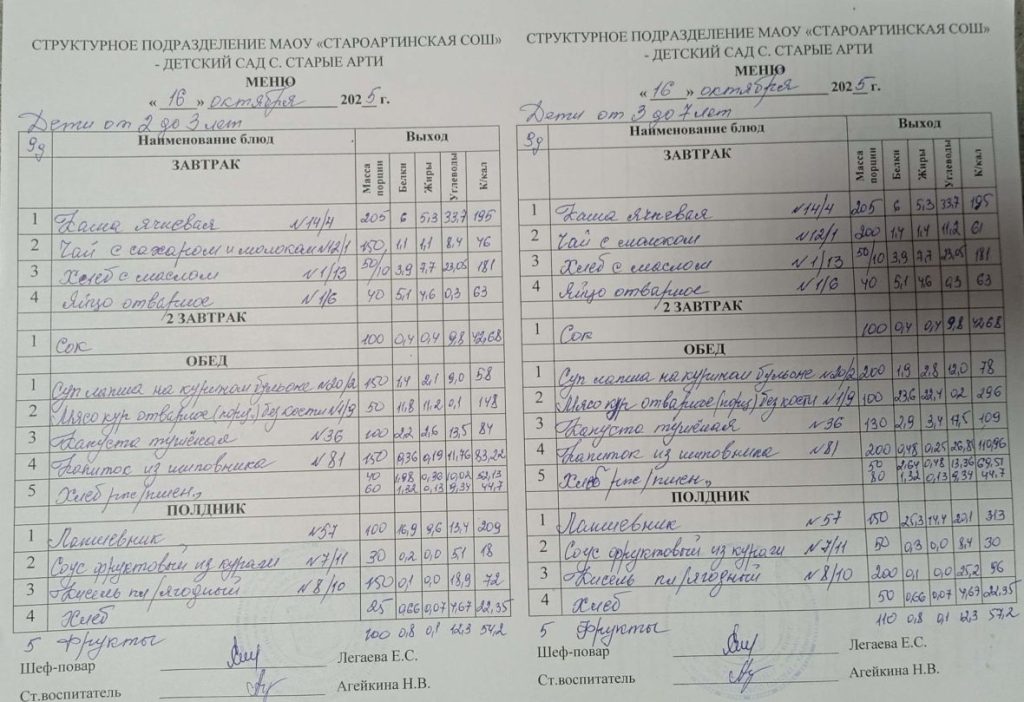 СТРУКТУРНОЕ ПОДРАЗДЕЛЕНИЕ МАОУ «СТАРОАРТИНСКАЯ СОШ»
- ДЕТСКИЙ САД С. СТАРЫЕ АРТИ
МЕНЮ
« 16 » октября 2025 г.
Дети от 2 до 3 лет
9д Наименование блюд Выход
ЗАВТРАК Масса порции Белки Жиры Углеводы К/кал
1 Каша ячневая №14/4 205 6 5,3 33,7 195
2 Чай с сахаром и молоком №12/1 150 1,1 1,1 8,4 46
3 Хлеб с маслом №1/13 50/10 3,9 7,7 23,05 181
4 Яйцо отварное №1/6 40 5,1 4,6 0,3 63
2 ЗАВТРАК
1 Сок 100 0,4 0,4 9,8 42,68
ОБЕД
1 Суп лапша на курином бульоне №20/2 150 1,4 2,1 9,0 58
2 Мясо кур отварное (порц) без кости №1/9 50 11,8 11,2 0,1 148
3 Капуста тушёная №36 100 2,2 2,6 13,5 84
4 Напиток из шиповника №81 150 0,36 0,19 11,76 83,22
40 1,98 0,36 10,02 52,13
5 Хлеб рж/пшен, 60 1,32 0,13 9,34 44,7
ПОЛДНИК
1 Лапшевник №57 100 16,9 9,6 13,4 209
2 Соус фруктовый из кураги №7/11 30 0,2 0,0 5,1 18
3 Кисель пл/ягодный №8/10 150 0,1 0,0 18,9 72
4 Хлеб 25 0,66 0,07 4,67 22,35
5 Фрукты 100 0,8 0,1 12,3 54,2
Шеф-повар Легаева Е.С.
Ст.воспитатель Агейкина Н.В.
СТРУКТУРНОЕ ПОДРАЗДЕЛЕНИЕ МАОУ «СТАРОАРТИНСКАЯ СОШ»
- ДЕТСКИЙ САД С. СТАРЫЕ АРТИ
МЕНЮ
« 16 » октября 2025 г.
Дети от 3 до 7 лет
9д Наименование блюд Выход
ЗАВТРАК Масса порции Белки Жиры Углеводы К/кал
1 Каша ячневая №14/4 205 6 5,3 33,7 195
2 Чай с молоком №12/1 200 1,4 1,4 11,2 61
3 Хлеб с маслом №1/13 50/10 3,9 7,7 23,05 181
4 Яйцо отварное №1/6 40 5,1 4,6 0,3 63
2 ЗАВТРАК
1 Сок 100 0,4 0,4 9,8 42,68
ОБЕД
1 Суп лапша на курином бульоне №20/2 200 1,9 2,8 12,0 78
2 Мясо кур отварное (порц) без кости №1/9 100 23,6 22,4 0,2 296
3 Капуста тушёная №36 130 2,9 3,4 17,5 109
4 Напиток из шиповника №81 200 0,48 0,25 26,81 110,96
50 2,64 0,48 13,36 69,51
5 Хлеб рж/пшен, 80 1,32 0,13 9,34 44,7
ПОЛДНИК
1 Лапшевник №57 150 25,3 14,4 20,1 313
2 Соус фруктовый из кураги №7/11 50 0,3 0,0 8,4 30
3 Кисель пл/ягодный №8/10 200 0,1 0,0 25,2 96
4 Хлеб 50 0,66 0,07 4,67 22,35
5 Фрукты 110 0,8 0,1 12,3 57,2
Шеф-повар Легаева Е.С.
Ст.воспитатель Агейкина Н.В.